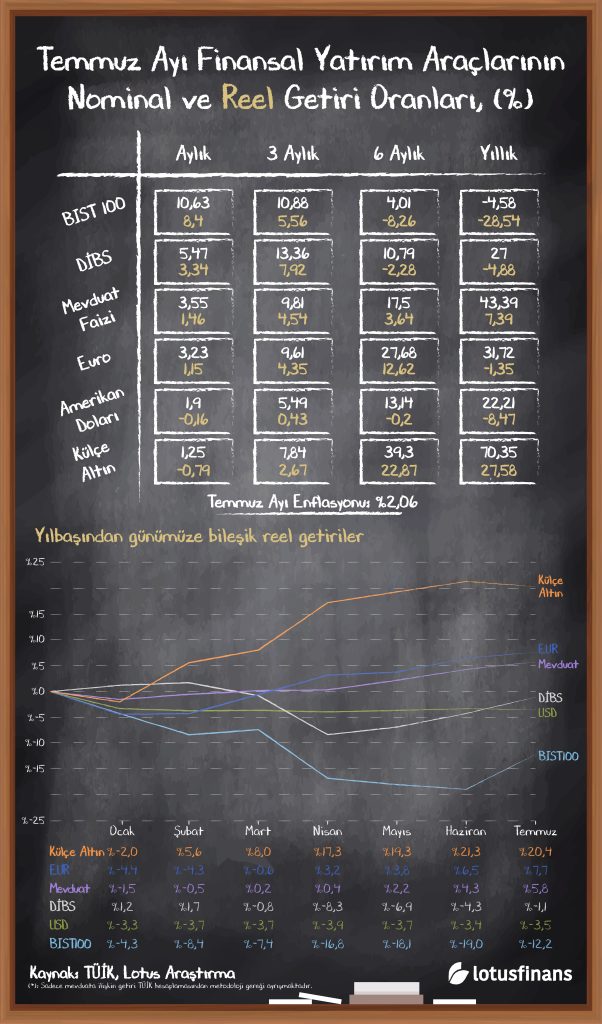 Temmuz Ayı Finansal Yatırım Araçlarının
Nominal ve Reel Getiri Oranları, (%)
Aylık 3 Aylık 6 Aylık Yıllık
BIST 100 10,63 10,88 4,01 -4,58
8,4 5,56 -8,26 -28,54
DİBS 5,47 13,36 10,79 27
3,34 7,92 -2,28 -4,88
Mevduat Faizi 3,55 9,81 17,5 43,39
1,46 4,54 3,64 7,39
Euro 3,23 9,61 27,68 31,72
1,15 4,35 12,62 -1,35
Amerikan Doları 1,9 5,49 13,14 22,21
-0,16 0,43 -0,2 -8,47
Külçe Altın 1,25 7,84 39,3 70,35
-0,79 2,67 22,87 27,58
Temmuz Ayı Enflasyonu: %2,06
Yılbaşından günümüze bileşik reel getiriler
%25
%15
%10
%5
%0
%-5
%-10
%-15
%-25
Külçe
Altın
EUR
Mevduat
DİBS
USD
BIST100
Ocak Şubat Mart Nisan Mayıs Haziran Temmuz
Külçe Altın %-2,0 %5,6 %8,0 %17,3 %19,3 %21,3 %20,4
EUR %-4,4 %-4,3 %-0,6 %3,2 %3,8 %6,5 %7,7
Mevduat %-1,5 %-0,5 %0,2 %0,4 %2,2 %4,3 %5,8
DİBS %1,2 %1,7 %-0,8 %-8,3 %-6,9 %-4,3 %-1,1
USD %-3,3 %-3,7 %-3,7 %-3,9 %-3,7 %-3,4 %-3,5
BIST100 %-4,3 %-8,4 %-7,4 %-16,8 %-18,1 %-19,0 %-12,2
Kaynak: TÜİK, Lotus Araştırma
(*): Sadece mevduata ilişkin getiri TÜİK hesaplamasından metodoloji gereği ayrışmaktadır.
lotusfinans